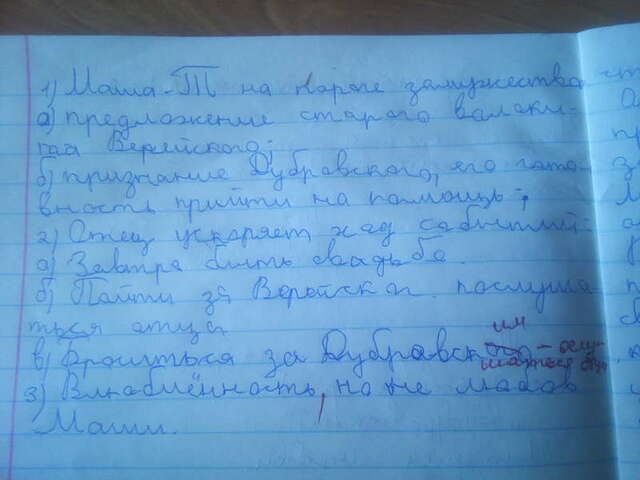 1) Маша-Т на пороге замужества
а) предложение старого волоки-
таа Верейского;
б) признание Дубравского, его гото-
вность прийти на помощь;
2) Отец ускоряет ход событий:
а) Завтра быть свадьбе.
б) Пойти за Верейског. послуша-
ться отца
в) броситься за Дубравским - ослу-
шаться отца
3) Влюблённость, но не любовь
Маши.